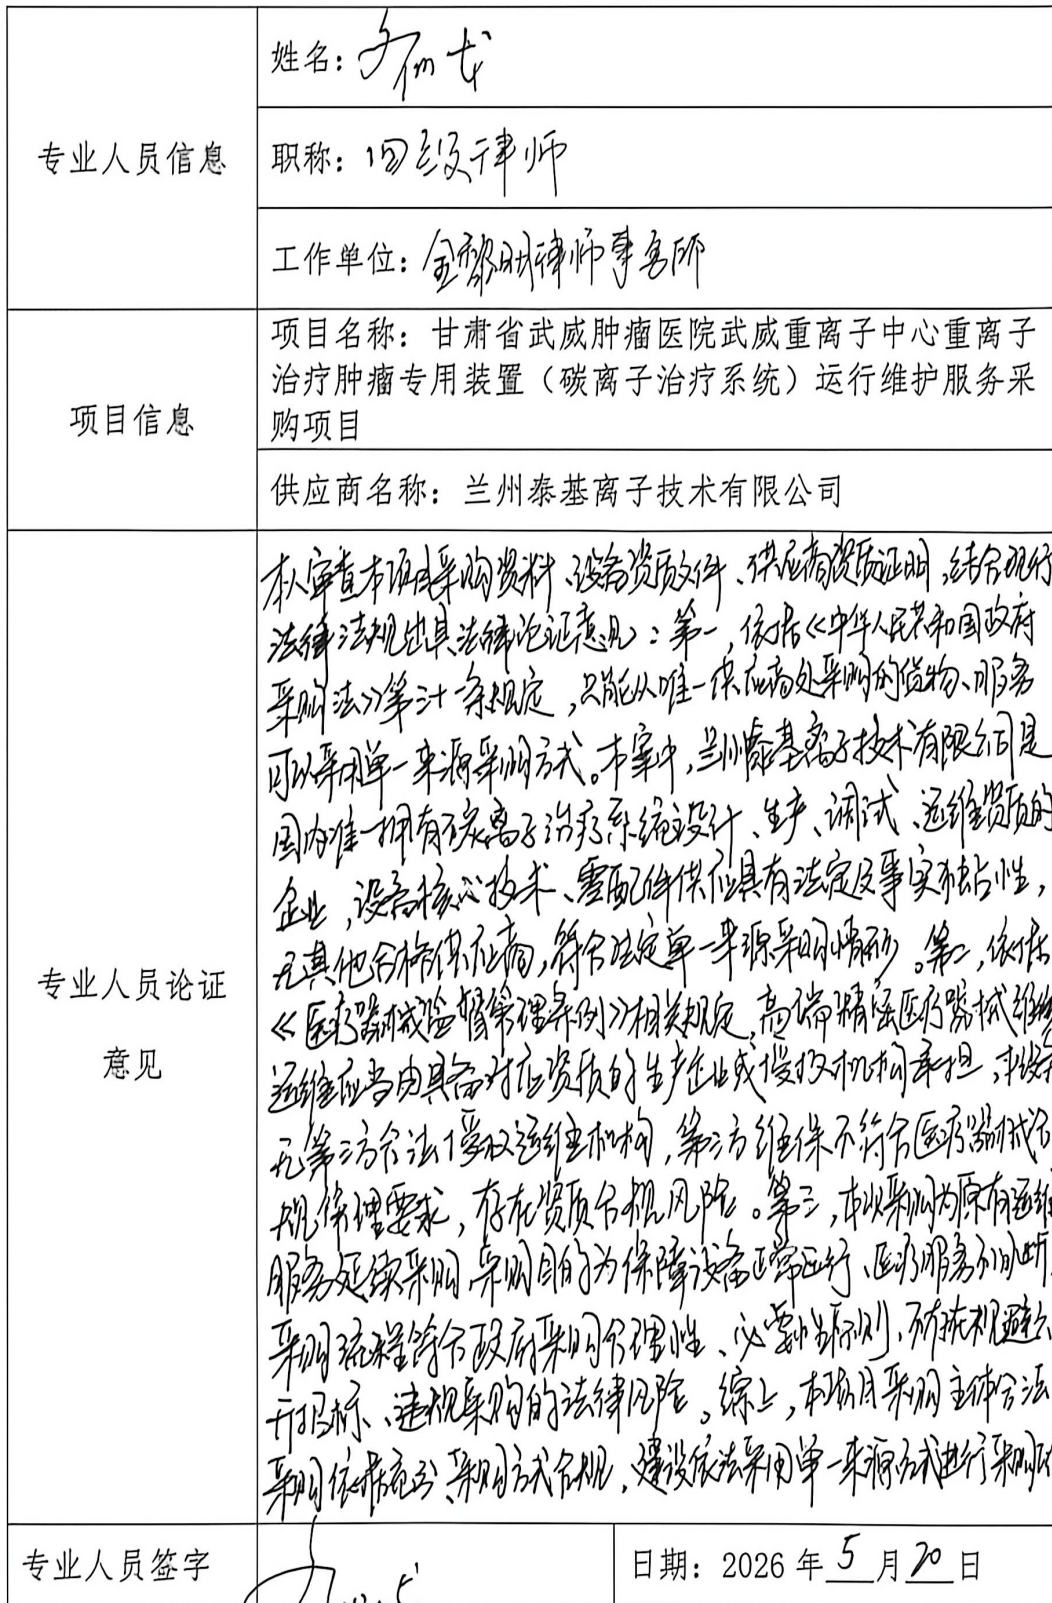 专业人员信息
姓名：
职称：四级律师
工作单位：金黎明律师事务所
项目信息
项目名称：甘肃省武威肿瘤医院武威重离子中心重离子
治疗肿瘤专用装置（碳离子治疗系统）运行维护服务采
购项目
供应商名称：兰州泰基离子技术有限公司
专业人员论证
意见
本人审查本项目采购资料、设备资质文件、供应商资质证明，结合现行
法律法规出具法律论证意见：第一，依据《中华人民共和国政府
采购法》第三十一条规定，只能从唯一供应商处采购的货物、服务
可以采用单一来源采购方式。本案中，兰州泰基离子技术有限公司是
国内唯一拥有碳离子治疗系统设计、生产、调试、运维资质的
企业，设备核心技术、零配件供应具有法定及事实独占性，
无其他合格供应商，符合法定单一来源采购情形。第二，依据
《医疗器械监督管理条例》相关规定，高端精密医疗器械维修
运维应当由具备对应资质的生产企业或授权机构承担，本设
无第三方合法授权运维机构，第三方维保不符合医疗器械合
规管理要求，存在资质合规风险。第三，本次采购为原有运维
服务延续采购，采购目的为保障设备正常运行、医疗服务不间断，
采购流程符合政府采购合理性、必要性原则，不存在规避公
开招标、违规采购的法律风险。综上，本项目采购主体合法
采购依据充分、采购方式合规，建议依法采用单一来源方式进行采购
专业人员签字
日期：2026年5月20日